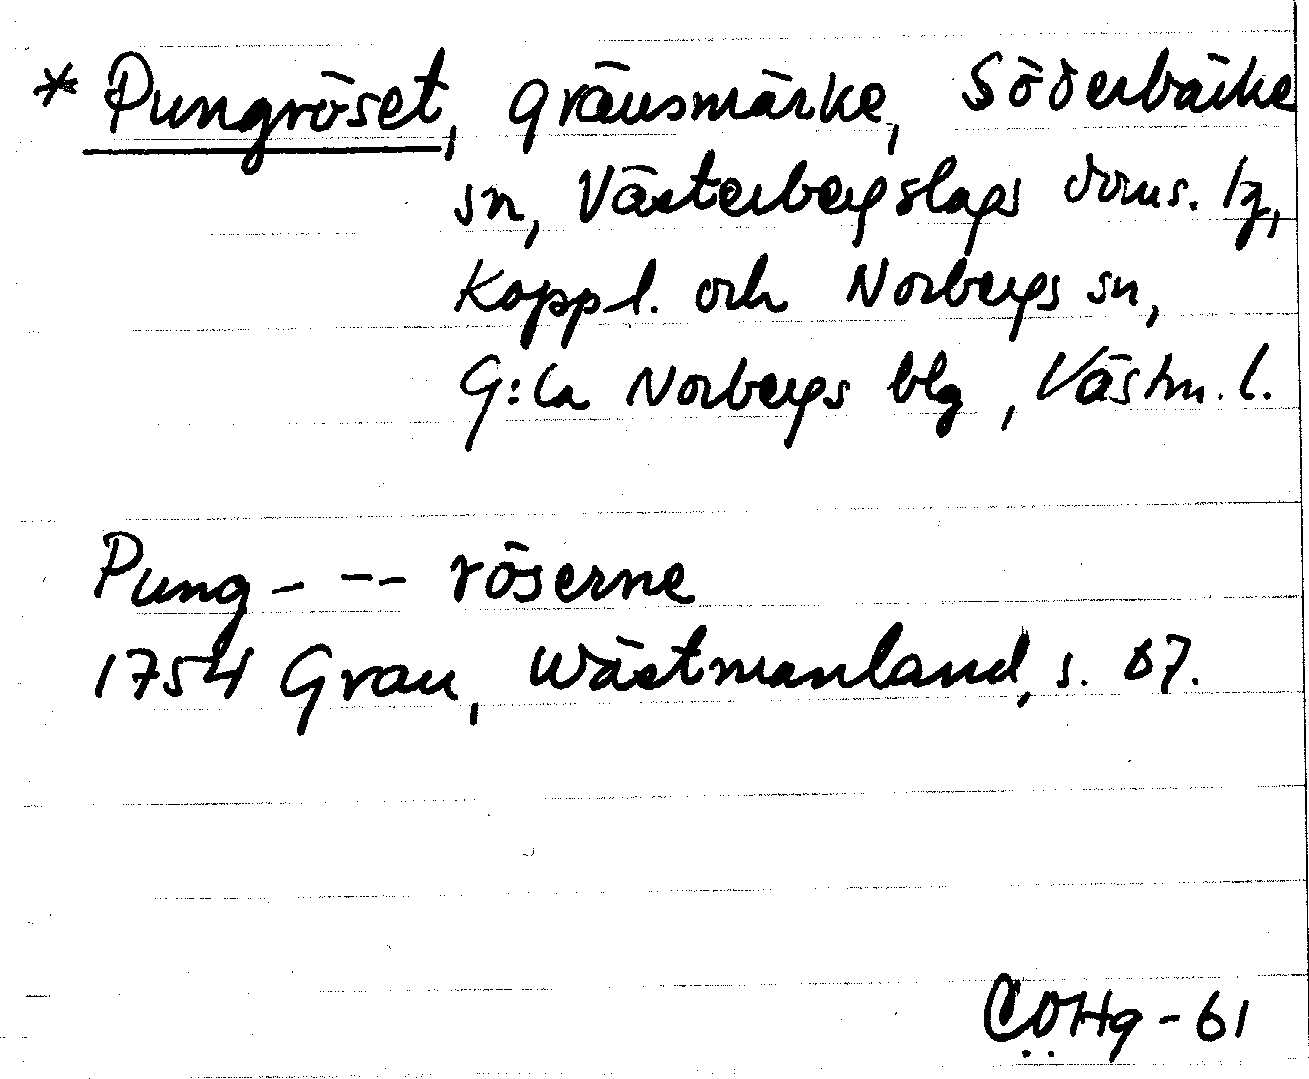 * Pungröset, gränsmärke, Söderbärke
sn, Västerbergslags doms. lg,
Koppl. och Norbergs sn,
G:la Norbergs blg, Västm. l.
Pung- -- röserne
1754 Grau, Wästmanland, s. 67.
COHg-61